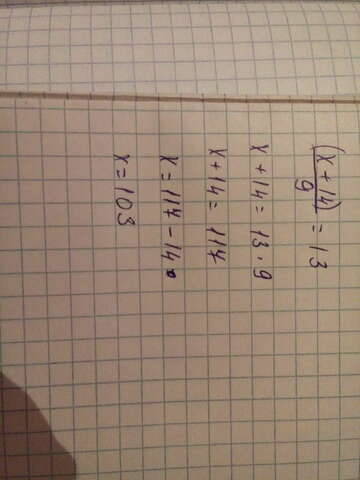 (x+14)/9 = 13
x+14 = 13·9
x+14 = 117
x = 117 - 14
x = 103